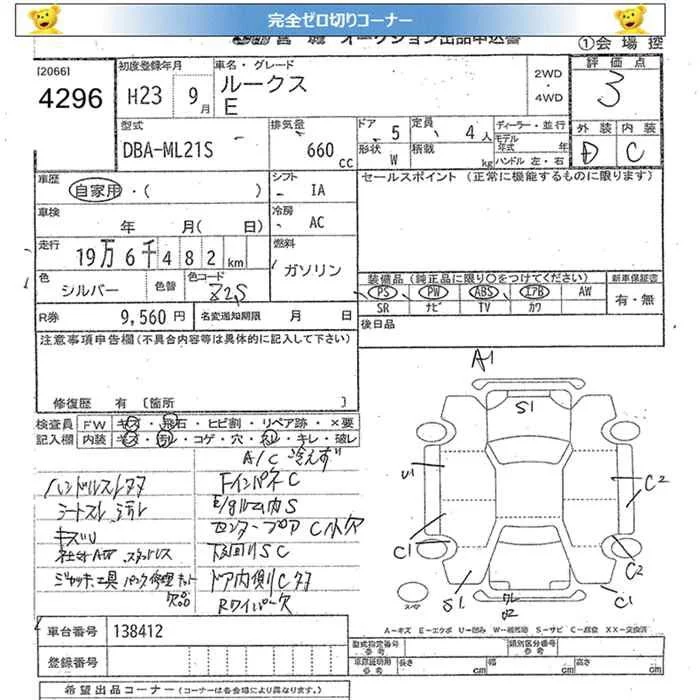 完全ゼロ切りコーナー
宮城 オークション出品申込書
①会場控
[2066]
4296
初度登録年月
H23 9月
車名・グレード
ルークス
E
2WD
・
4WD
評価点
3
外装 内装
D C
型式
DBA-ML21S
排気量
660 cc
ドア 5
定員 4人
形状 W
積載 kg
ディーラー・並行
モデル年式 年
ハンドル 左・右
車歴
自家用・( )
シフト
IA
セールスポイント (正常に機能するものに限ります)
車検
年 月( 日)
冷房
AC
走行
19万6千482km
燃料
ガソリン
色
シルバー
色替
色コード
Z2S
装備品(純正品に限り○をつけてください)
新車保証書
PS PW ABS エアB AW
SR ナビ TV カワ
有・無
R券
9,560円
名変通知期限 月 日
後日品
注意事項申告欄(不具合内容等は具体的に記入して下さい)
修復歴 有 [箇所 ]
検査員 FW キズ・飛石・ヒビ割・リペア跡・×要
記入欄 内装 キズ・汚レ・コゲ・穴・ネジ・キレ・破レ
A/C 冷えず
ハンドルスレ
FインパネC
シートスレ 汚レ
E/gルーム内S
キズU
センターフロアC小欠
社外AW スタッドレス
下回りSC
ジャッキ、工具 パンク修理キット
欠品
ドア内側C
Rワイパー欠
A1
S1
U1
C2
C1
C2
S1
C1
スペア
A-キズ E-エクボ U-凹み W-補修跡 S-サビ C-腐食 XX-交換済
車台番号
138412
登録番号
型式指定番号
参考
類別区分番号
参考
車庫証明用
参考
長さ
幅
高さ
希望出品コーナー(コーナーは各会場により異なります)